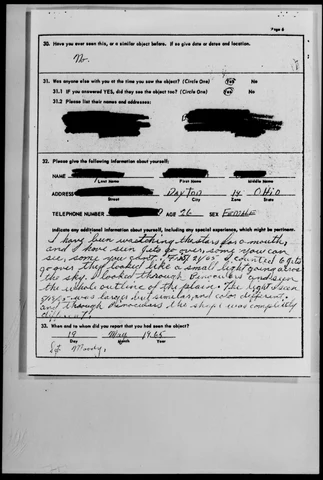 Page 6
30. Have you ever seen this, or a similar object before. If so give date or dates and location.
No.
31. Was anyone else with you at the time you saw the object? (Circle One) Yes No
31.1 If you answered YES, did they see the object too? (Circle One) Yes No
31.2 Please list their names and addresses:
32. Please give the following information about yourself:
NAME
Last Name First Name Middle Name
ADDRESS Dayton 14 Ohio
Street City Zone State
TELEPHONE NUMBER AGE 26 SEX Female
Indicate any additional information about yourself, including any special experience, which might be pertinent.
I have been watching the stars for a month,
and I have seen jets go over, some you can
see, some you can't. I counted 6 jets
go over they looked like a small light going across
the sky. I looked through Binoculars and seen
the whole outline of the plain. The light I seen
was larger but similar, and color different.
and through Binoculars, the shape was completely
different
33. When and to whom did you report that you had seen the object?
19 May 1965
Day Month Year
Moody,